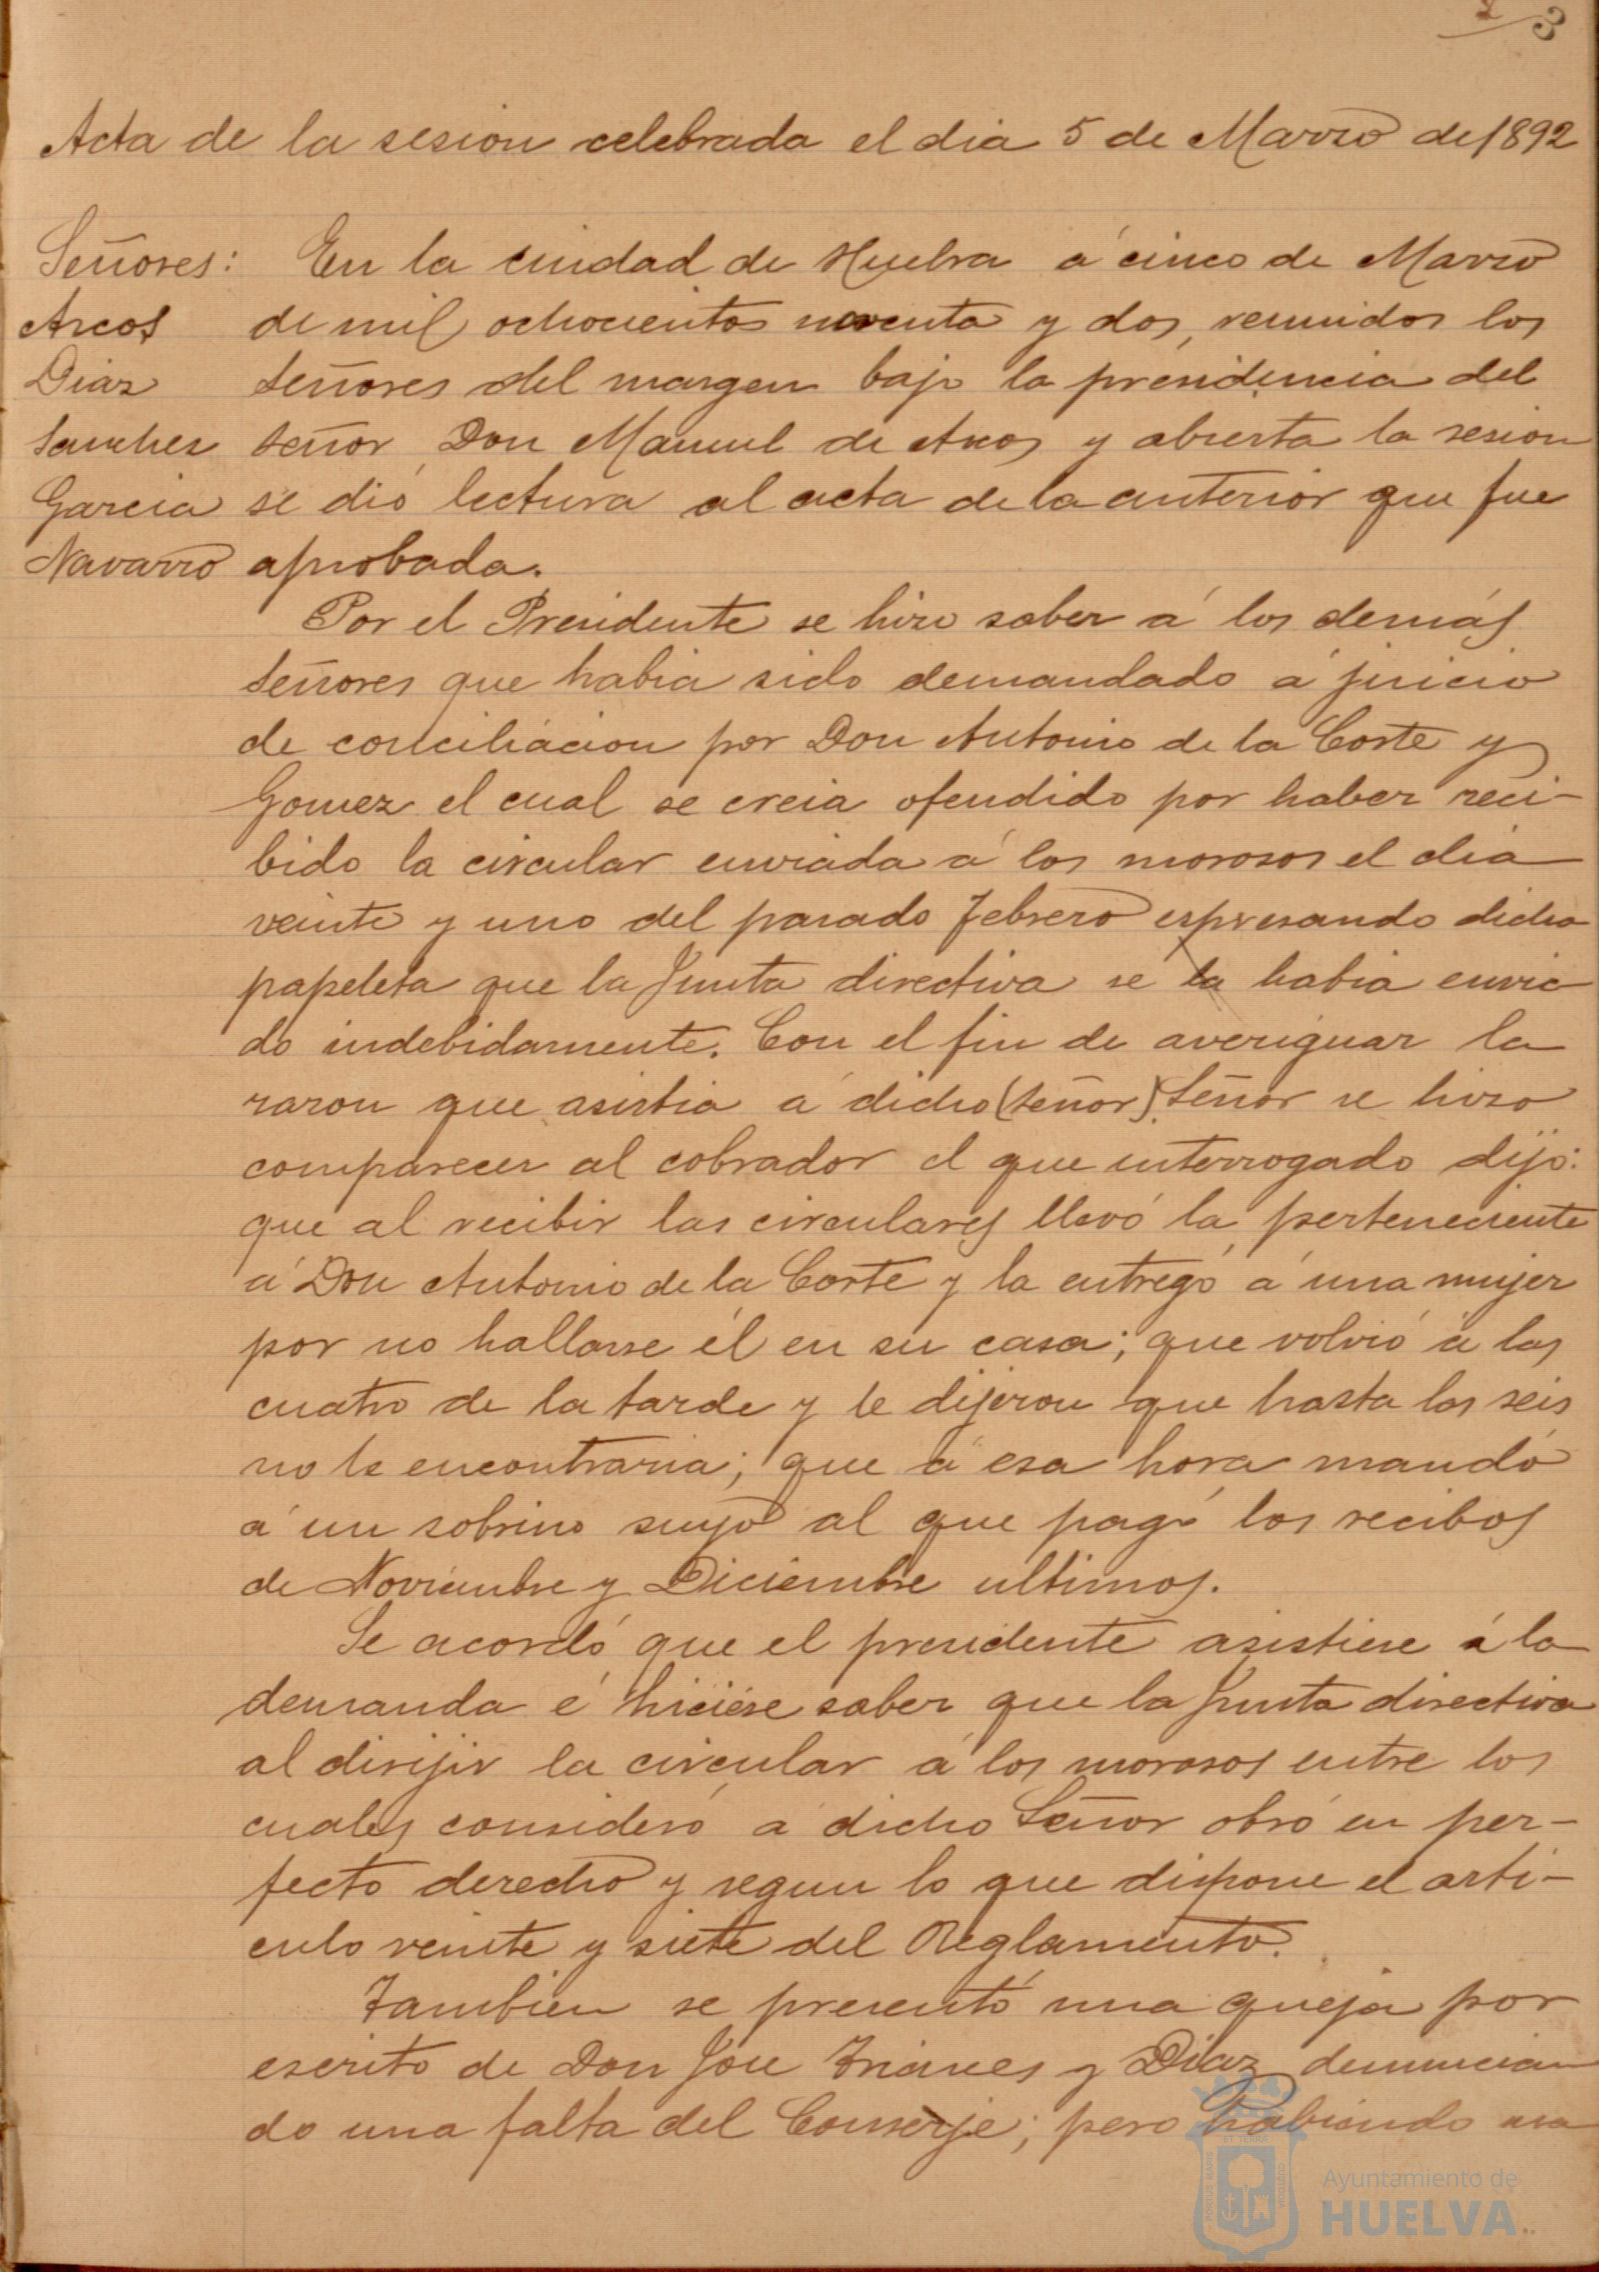 3
Acta de la sesion celebrada el dia 5 de Marzo de 1892
Señores:
Arcos
Diaz
Sanchez
Garcia
Navarro
En la ciudad de Huelva á cinco de Marzo
de mil ochocientos noventa y dos, reunidos los
señores del margen bajo la presidencia del
señor Don Manuel de Arcos y abierta la sesion
se dió lectura al acta de la anterior que fue
aprobada.
Por el Presidente se hizo saber á los demás
señores que habia sido demandado á juicio
de conciliacion por Don Antonio de la Corte y
Gomez el cual se creia ofendido por haber reci-
bido la circular enviada á los morosos el dia
veinte y uno del pasado Febrero espresando dicha
papeleta que la Junta directiva se la habia envia
do indebidamente. Con el fin de averiguar la
razon que asistia á dicho (señor) Señor se hizo
comparecer al cobrador el que interrogado dijo:
que al recibir las circulares llevó la perteneciente
á Don Antonio de la Corte y la entregó á una mujer
por no hallarse él en su casa; que volvió á las
cuatro de la tarde y le dijeron que hasta las seis
no le encontraria; que á esa hora mandó
á un sobrino suyo al que pagó los recibos
de Noviembre y Diciembre ultimos.
Se acordó que el presidente asistiese á la
demanda é hiciése saber que la Junta directiva
al dirijir la circular á los morosos entre los
cuales consideró á dicho Señor obró en per-
fecto derecho y segun lo que dispone el arti-
culo veinte y siete del Reglamento.
Tambien se presentó una queja por
escrito de Don José Trianes y Diaz denuncian
do una falta del Conserje; pero habiendo
Ayuntamiento de
HUELVA